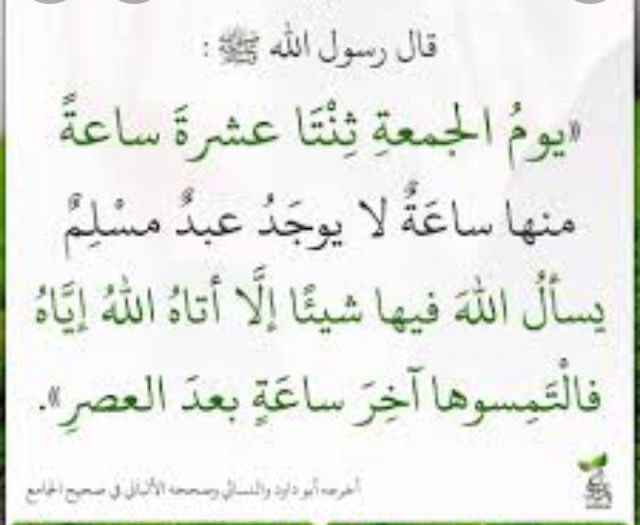 قال رسول الله ﷺ :
«يومُ الجمعةِ ثِنْتَا عشرةَ ساعةً
منها ساعَةٌ لا يوجَدُ عبدٌ مسْلِمٌ
يسألُ اللهَ فيها شيئًا إلَّا أتاهُ اللهُ إيَّاهُ
فالْتَمِسوها آخِرَ ساعَةٍ بعدَ العصرِ».
أخرجه أبو داود والنسائي وصححه الألباني في صحيح الجامع